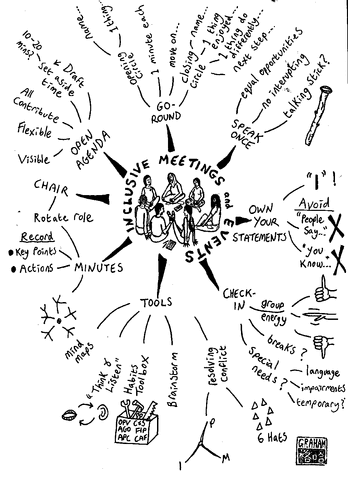 INCLUSIVE MEETINGS and EVENTS
GO-
ROUND
name...
1 thing...
opening
circle
1 minute each
move on...
closing
circle
name...
1 thing
enjoyed...
1 thing do
differently...
next step...
SPEAK
ONCE
equal opportunities
no interrupting
talking stick?
OWN
YOUR
STATEMENTS
"I"!
Avoid
"People
Say..."
"You
Know..."
CHECK-
IN
group
energy
breaks?
special
needs?
language
impairments
temporary?
TOOLS
mind
maps
"Think &
Listen"
Habits
Toolbox
OPV CAS
AGO FIP
APC CAF
Brainstorm
resolving
conflict
P
I
M
6 Hats
MINUTES
Rotate role
Record
Key Points
Actions
CHAIR
OPEN
AGENDA
10-20
mins?
Draft
set aside
time
All
Contribute
Flexible
Visible
GRAHAM